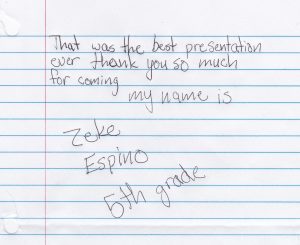 That was the best presentation
ever thank you so much
for coming
my name is
Zeke
Espino
5th grade